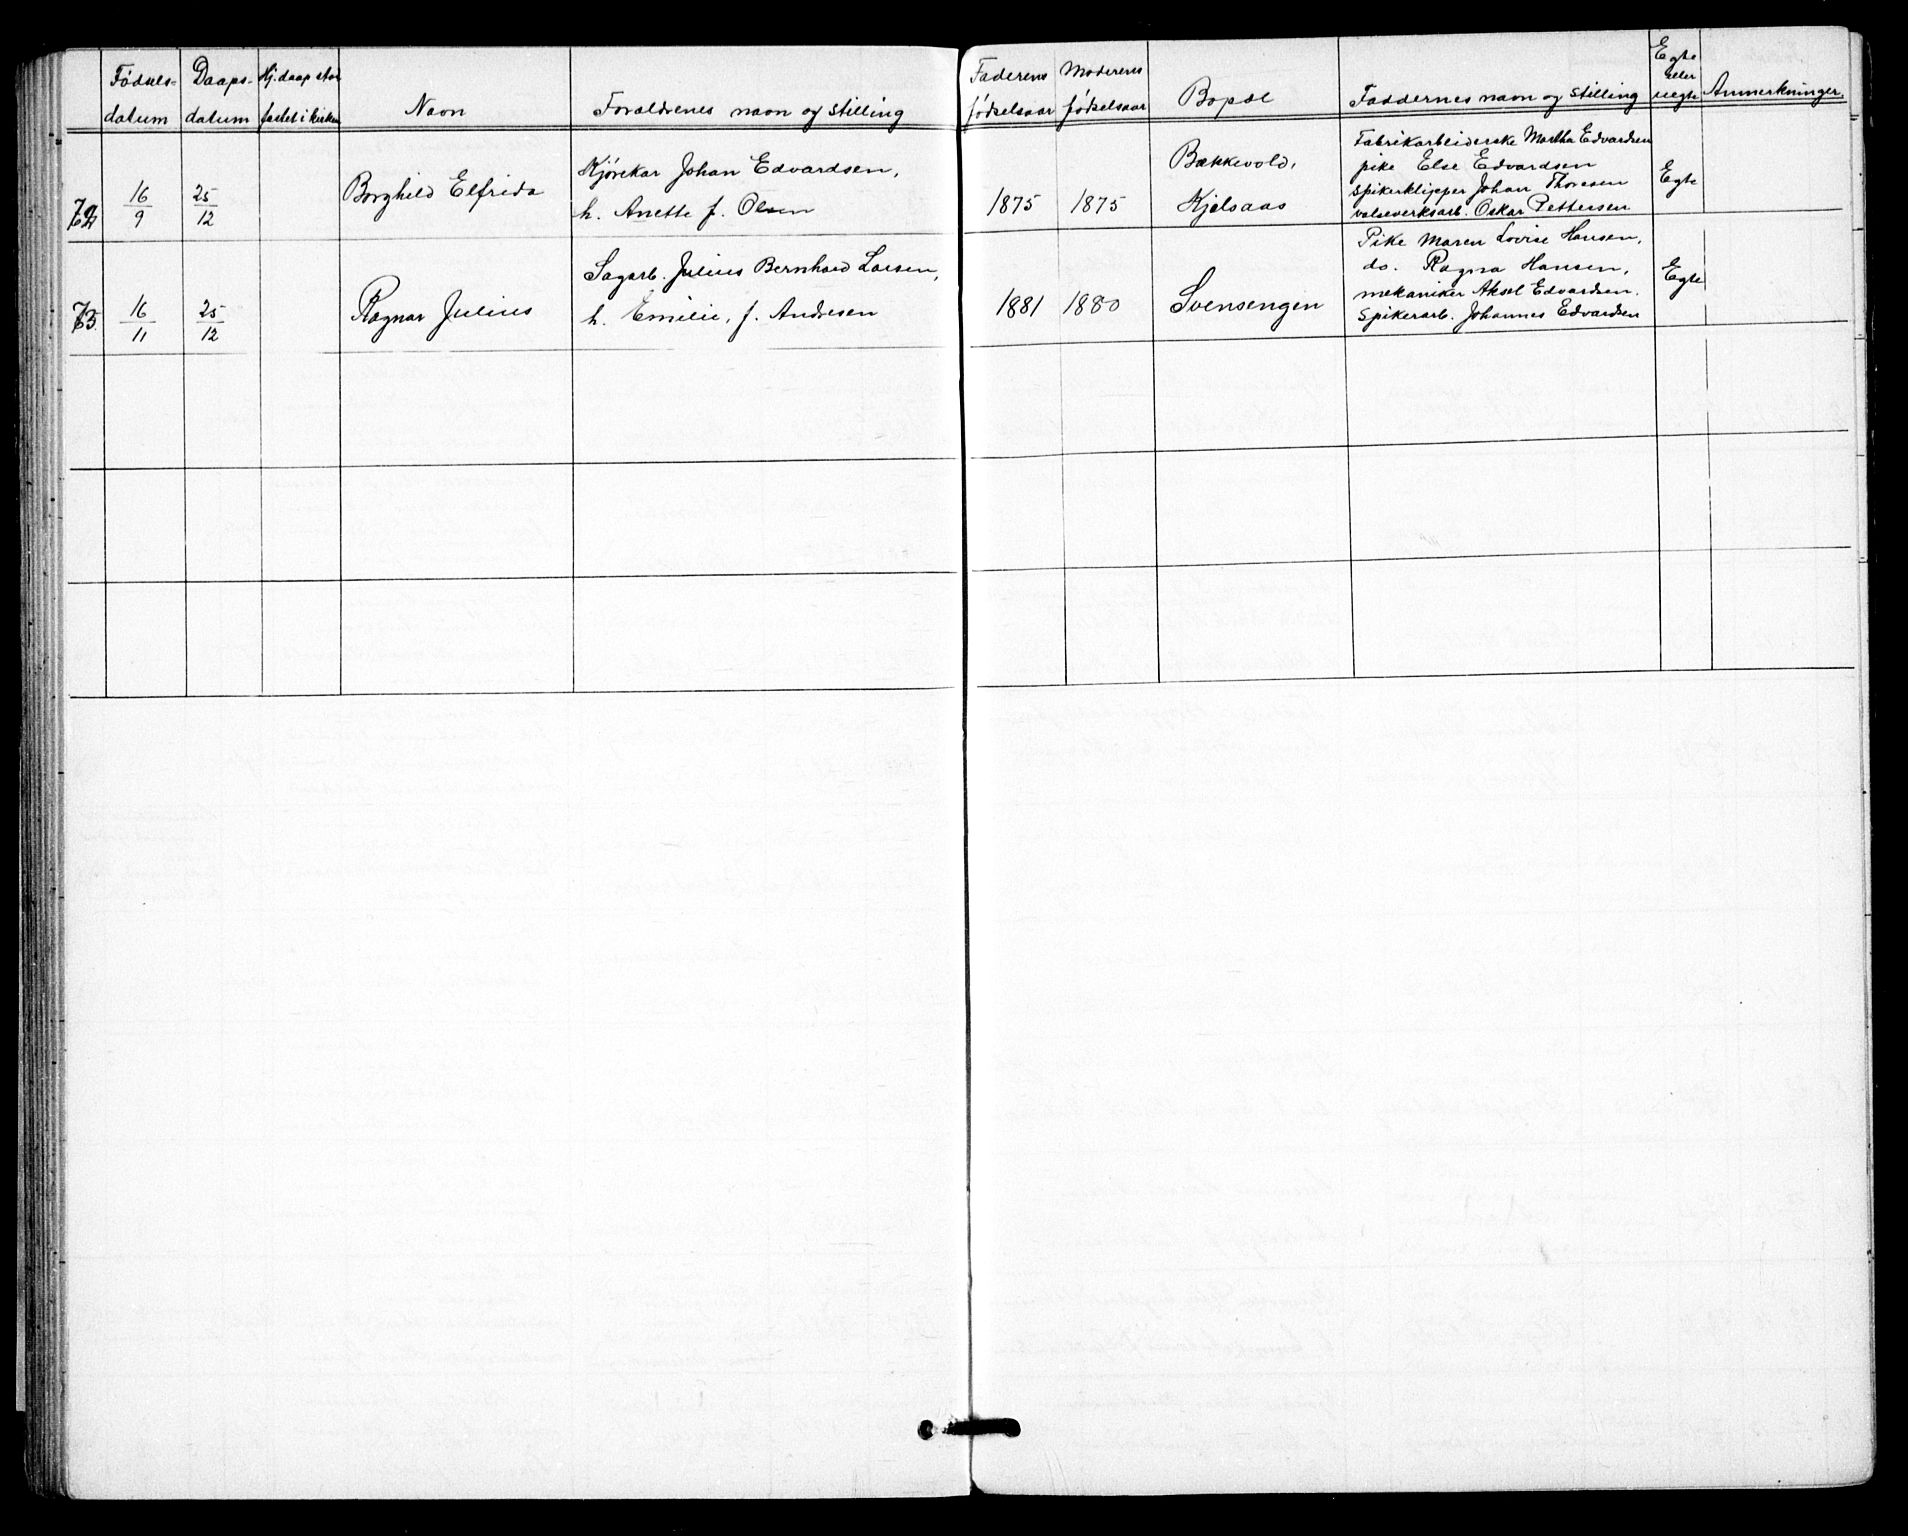 Fødsels-
datum
Daaps-
datum
Hj.daap stad
fæstet i kirken
Navn
Forældrenes navn og stilling
Faderens
fødselsaar
Moderens
fødselsaar
Bopæl
Faddernes navn og stilling
Egte
eller
uegte
Anmerkninger
72
16/9
25/12
Borghild Elfrida
Kjørekar Johan Edvardsen,
h. Anette f. Olsen
1875
1875
Bækkevold,
Kjelsaas
Fabrikarbeiderske Martha Edvardsen
pike Else Edvardsen
spikerklipper Johan Thoresen
valseverksarb. Oskar Pettersen
Egte
73.
16/11
25/12
Ragnar Julius
Sagarb. Julius Bernhard Larsen,
h. Emilie, f. Andresen
1881
1880
Svensengen
Pike Maren Lovise Hansen,
do. Ragna Hansen,
mekaniker Aksel Edvardsen.
Spikerarb. Johannes Edvardsen
Egte